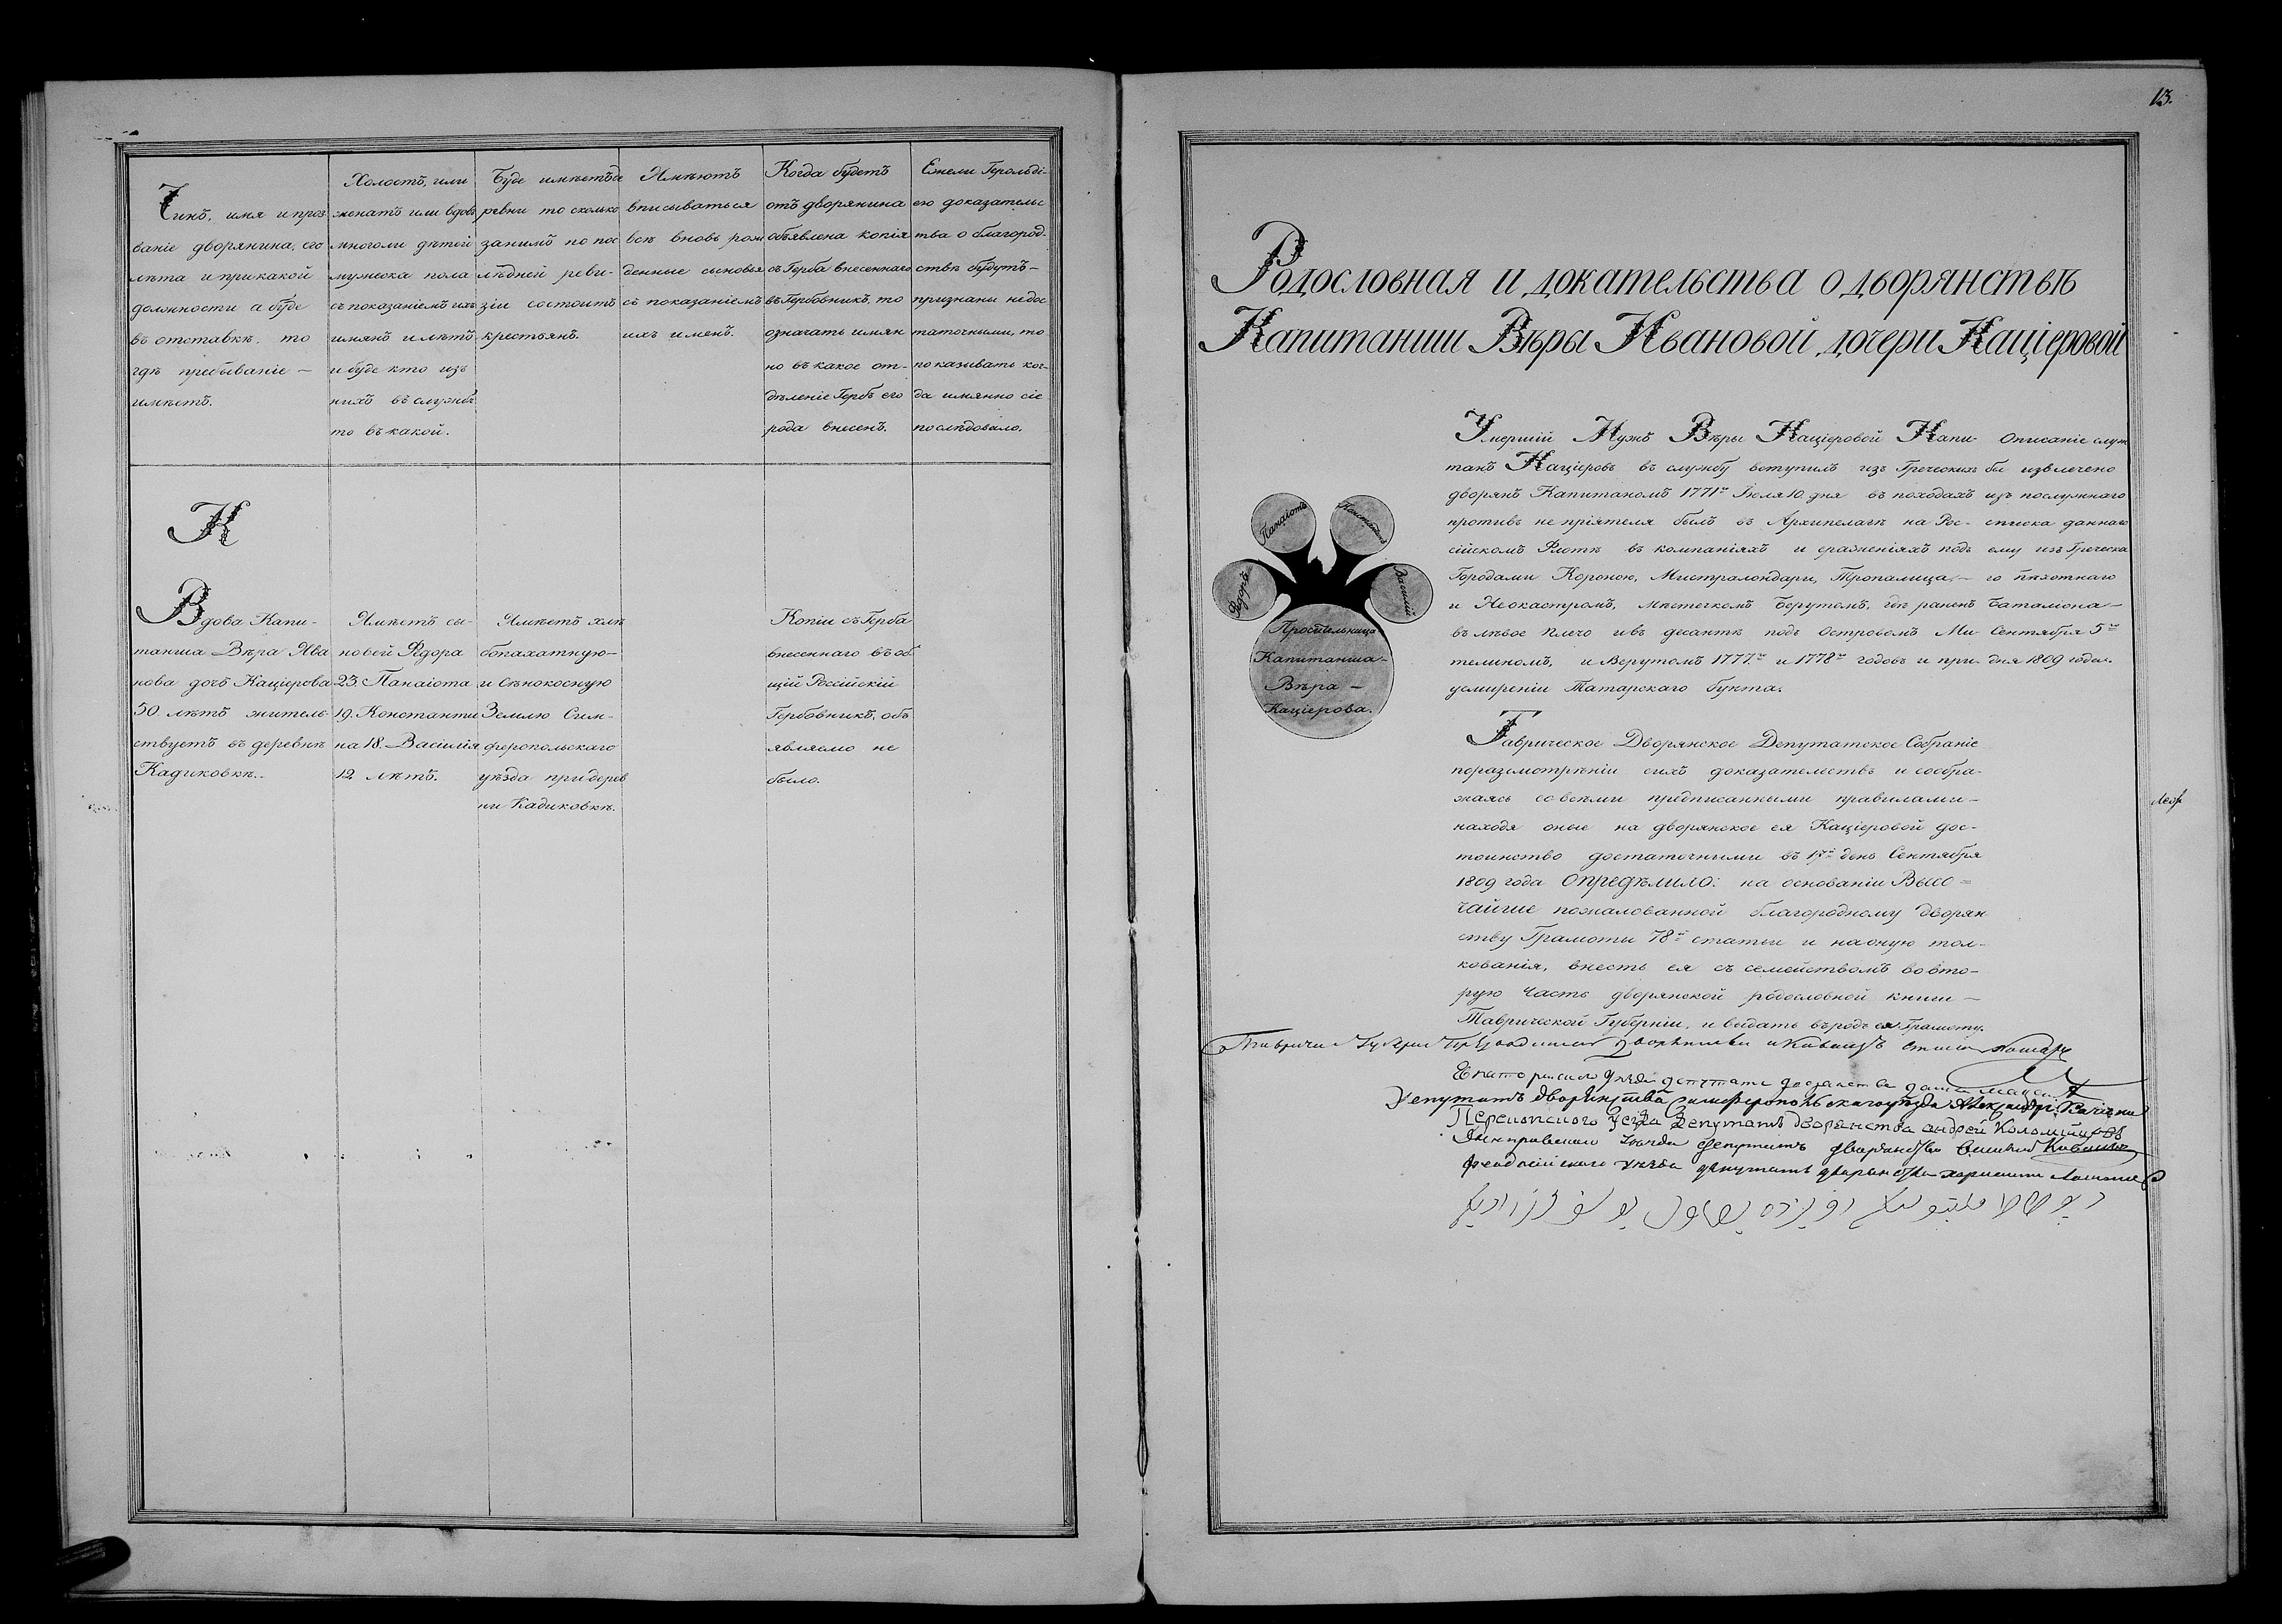 Чинъ, имя и проз
ваніе дворянина, его
лѣта и при какой
должности а буде
въ отставкѣ, то
гдѣ пребываніе —
имѣетъ.
Холостъ, или
женатъ или вдовъ
многоли дѣтей
мужеска пола
съ показаніемъ ихъ
имянъ и лѣтъ
и буде кто изъ
нихъ въ службѣ
то въ какой.
Буде имѣетъ де
ревни то сколько
занимъ по пос
лѣдней реви-
зіи состоитъ
крестьянъ.
Имѣютъ
вписываться
всѣ вновь рож
денные сыновья
съ показаніемъ
ихъ именъ.
Когда будетъ
отъ дворянина
объявлена копія
съ Герба внесеннаго
въ Гербовникъ, то
означать имян
но въ какое от-
дѣленіе Гербъ его
рода внесенъ.
Ежели Герольді-
ею доказательс
тва о благород-
ствѣ будутъ —
признаны недос
таточными, то
показывать ког-
да имянно сіе
послѣдовало.
К
Вдова Капи-
танша Вѣра Ива
нова дочь Каціерова
50 лѣтъ житель-
ствуетъ въ деревнѣ
Кадиковкѣ.
Имѣетъ сы-
новей Ѳедора
23. Панаіота
19. Константи
на 18. Василія
12 лѣтъ.
Имѣетъ хлѣ
бопахатную —
и сѣнокосную
Землю Сим-
феропольскаго
уѣзда при дерев
ни Кадиковкѣ.
Копіи съ Герба
внесеннаго въ об
щій Россійскій
Гербовникъ, объ
являемо не
было.
13.
Родословная и докательства о дворянствѣ
Капитанши Вѣры Ивановой дочери Каціеровой
Панаіотъ
Константинъ
Ѳедоръ
Василій
Просительница
Капитанша —
Вѣра —
Каціерова.
Умершій Мужъ Вѣры Каціеровой Капи-
танъ Каціеровъ въ службу вступилъ изъ Греческихъ
дворянъ Капитаномъ 1771го Іюля 10 дня въ походахъ
противъ непріятеля былъ въ Архипелагѣ на Рос-
сійскомъ Флотѣ въ компаніяхъ и сраженіяхъ подъ
Городами Короною, Мистралондари, Трополица, —
и Неокастромъ, мѣстечкомъ Берутомъ, гдѣ раненъ
въ лѣвое плечо и въ десантѣ подъ островомъ Ми
телиномъ, и Верутомъ 1777го и 1778го годовъ и при
усмиреніи Татарскаго бунта.
Описаніе служ
бы извлечено
изъ послужнаго
списка даннаго
ему изъ Греческа
го пѣхотнаго
Баталіона —
Сентября 5го
дня 1809 года.
Таврическое Дворянское Депутатское Собраніе
поразсмотрѣніи сихъ доказательствъ и сообра-
жаясь со всѣми предписанными правилами —
находя оные на дворянское ея Каціеровой дос-
тоинство достаточными въ 17й день Сентября
1809 года опредѣлило: на основаніи Высо =
чайше пожалованной благородному дворян
ству Грамоты 78й статьи и наоную тол-
кованія, внесть ея съ семействомъ во вто-
рую часть дворянской родословной книги —
Таврической Губерніи, и выдать въ родъ ея Грамоту.
Депутатъ дворянства Симферопольскаго уѣзда Александръ
Перекопского уезда Депутатъ дворянства андрей Коломийцовъ
Днепровскаго уѣзда Депутатъ дворянства
Феодосійскаго уѣзда депутатъ дворянства